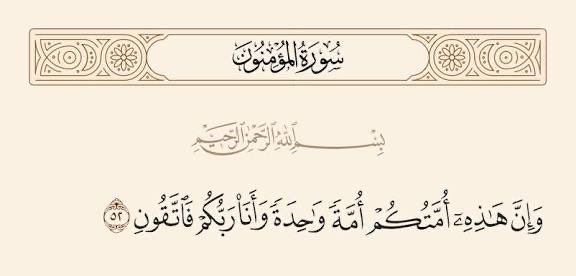 سُورَةُ المُؤْمِنُون
بِسْمِ ٱللَّهِ ٱلرَّحْمَٰنِ ٱلرَّحِيمِ
وَإِنَّ هَٰذِهِۦٓ أُمَّتُكُمْ أُمَّةً وَٰحِدَةً وَأَنَا۠ رَبُّكُمْ فَٱتَّقُونِ ٥٢